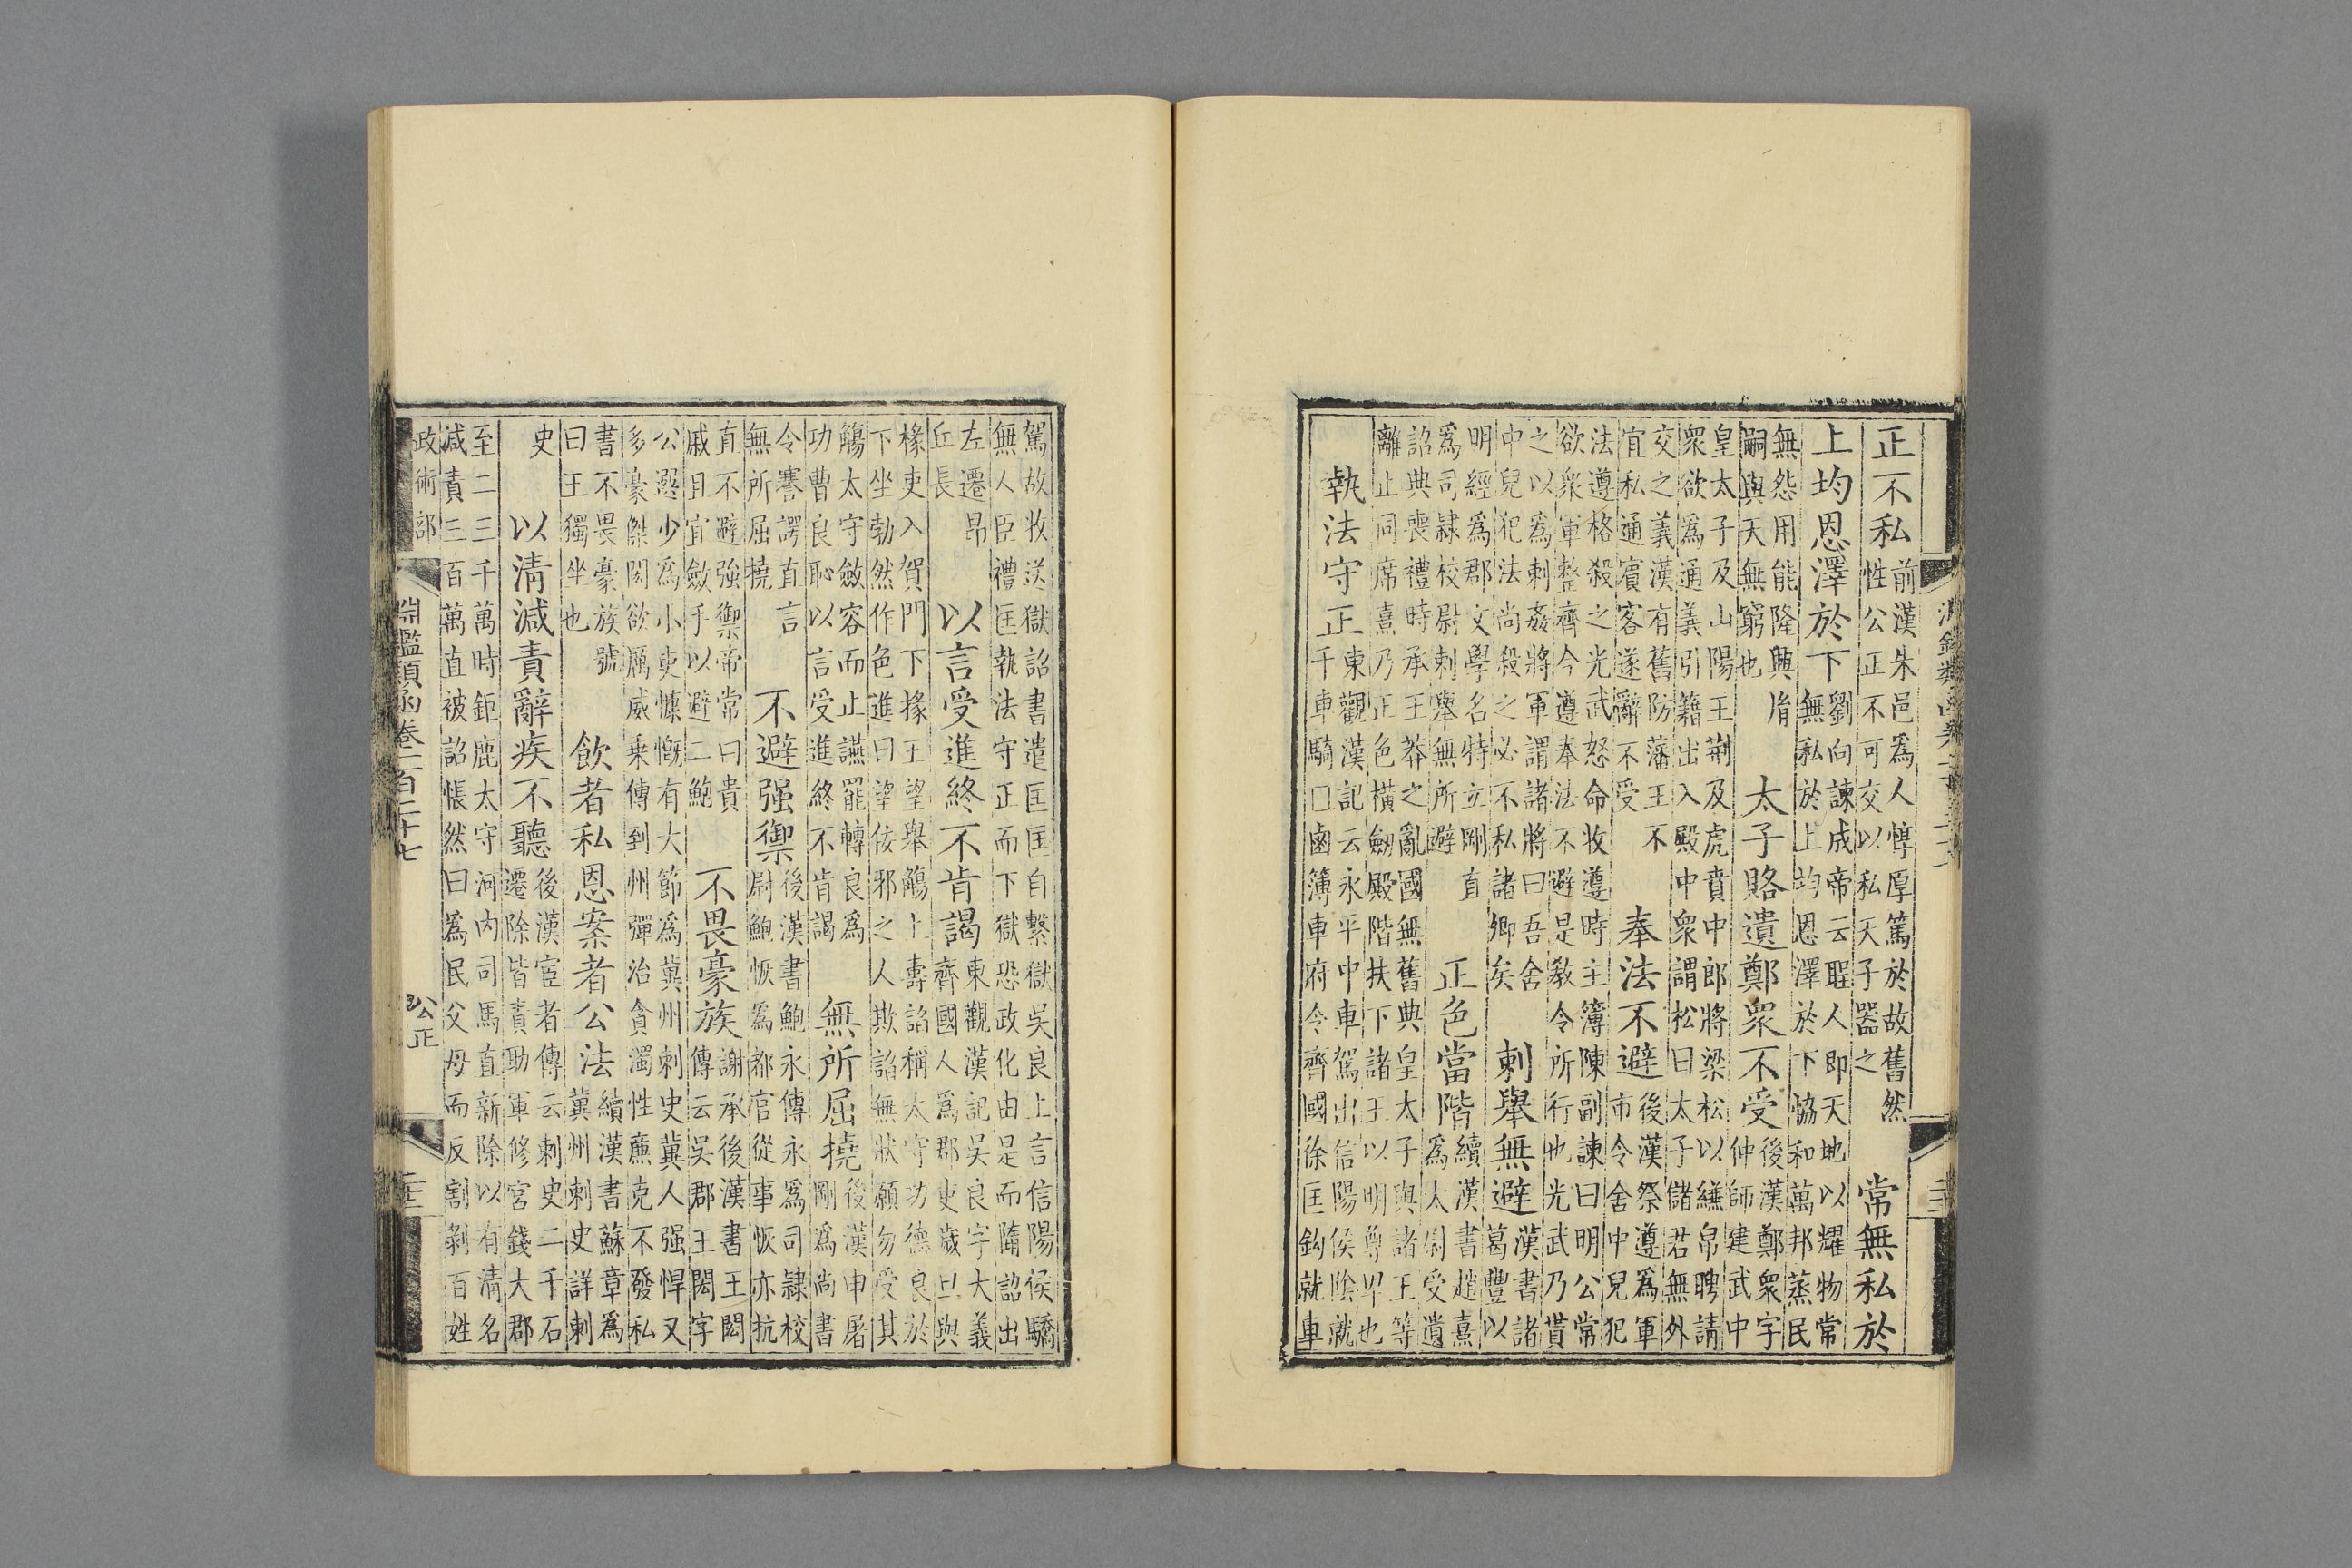 正不私
前漢朱邑爲人惇厚篤於故舊然
性公正不可交以私天子器之
常無私於
上均恩澤於下
劉向諫成帝云聖人即天地以耀物常
無私於上均恩澤於下恊和萬邦蒸民
無怨用能隆興胤
嗣與天無窮也
太子賂遺鄭衆不受
後漢鄭衆字
仲師建武中
皇太子及山陽王荆及虎賁中郎將梁松以縑帛聘請
衆欲爲通義引籍出入殿中衆謂松曰太子儲君無外
交之義漢有舊防藩王不
宜私通賔客遂辭不受
奉法不避
後漢祭遵爲軍
市令舍中兒犯
法遵格殺之光武怒命收遵時主簿陳副諫曰明公常
欲衆軍整齊今遵奉法不避是敎令所行也光武乃貰
之以爲刺姦將軍謂諸將曰吾舍
中兒犯法尚殺之必不私諸卿矣
刺舉無避
漢書諸
葛豐以
明經爲郡文學名特立剛直
爲司隸校尉刺舉無所避
正色當階
續漢書趙熹
爲太尉受遺
詔典喪禮時承王莽之亂國無舊典皇太子與諸王等
離止同席熹乃正色橫劒殿階扶下諸王以明尊卑也
執法守正
東觀漢記云永平中車駕出信陽侯陰就
干車騎囗鹵簿車府令齊國徐匡鈎就車
駕故收送獄詔書遣匡匡自繫獄吳良上言信陽侯驕
無人臣禮匡執法守正而下獄恐政化由是而隳詔出
左遷昻
丘長
以言受進終不肯謁
東觀漢記吳良字大義
齊國人爲郡吏歲旦與
掾吏入賀門下掾王望舉觴上壽諂稱太守功德良於
下坐勃然作色進曰望佞邪之人欺諂無狀願勿受其
觴太守斂容而止讌罷轉良爲
功曹良恥以言受進終不肯謁
無所屈撓
後漢申屠
剛爲尚書
令謇諤直言
無所屈撓
不避强禦
後漢書鮑永傳永爲司隸校
尉鮑恢爲都官從事恢亦抗
直不避强禦帝常曰貴
戚且宜斂手以避二鮑
不畏豪族
謝承後漢書王閎
傳云吳郡王閎字
公選少爲小吏慷慨有大節爲冀州刺史冀人强悍又
多豪傑閎欲厲威乘傳到州彈治貪濁性亷克不發私
書不畏豪族號
曰王獨坐也
飲者私恩案者公法
續漢書蘇章爲
冀州刺史詳刺
史
以清減責辭疾不聽
後漢宦者傳云刺史二千石
遷除皆責助軍修宮錢大郡
至二三千萬時鉅鹿太守河内司馬直新除以有清名
減責三百萬直被詔悵然曰爲民父母而反割剥百姓
政術部
淵鑑類函卷二百二十七
公正